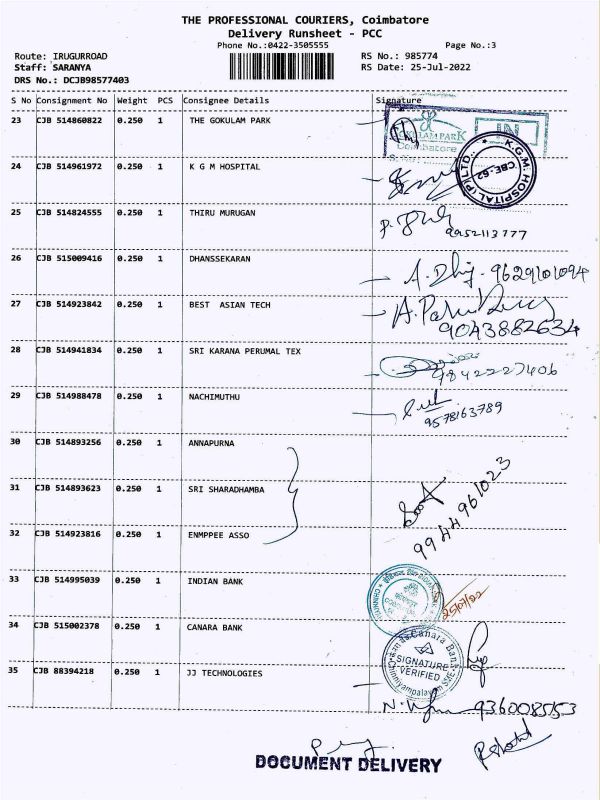 THE PROFESSIONAL COURIERS, Coimbatore
Delivery Runsheet - PCC
Phone No.:0422-3505555 Page No.:3
Route: IRUGURROAD RS No.: 985774
Staff: SARANYA RS Date: 25-Jul-2022
DRS No.: DCJB98577403
S No Consignment No Weight PCS Consignee Details Signature
23 CJB 514860822 0.250 1 THE GOKULAM PARK
GOKULAM PARK IN
Coimbatore
24 CJB 514961972 0.250 1 K G M HOSPITAL
K.G.M. HOSPITAL (P) LTD. CBE-62
25 CJB 514824555 0.250 1 THIRU MURUGAN
9952113777
26 CJB 515009416 0.250 1 DHANSSEKARAN
9629101094
27 CJB 514923842 0.250 1 BEST ASIAN TECH
9043882634
28 CJB 514941834 0.250 1 SRI KARANA PERUMAL TEX
9842227406
29 CJB 514988478 0.250 1 NACHIMUTHU
9578163789
30 CJB 514893256 0.250 1 ANNAPURNA
31 CJB 514893623 0.250 1 SRI SHARADHAMBA
9944961023
32 CJB 514923816 0.250 1 ENMPPEE ASSO
33 CJB 514995039 0.250 1 INDIAN BANK
34 CJB 515002378 0.250 1 CANARA BANK
Canara Bank
SIGNATURE
VERIFIED
Chinniyampalayam SME
35 CJB 88394218 0.250 1 JJ TECHNOLOGIES
9360085553
DOCUMENT DELIVERY